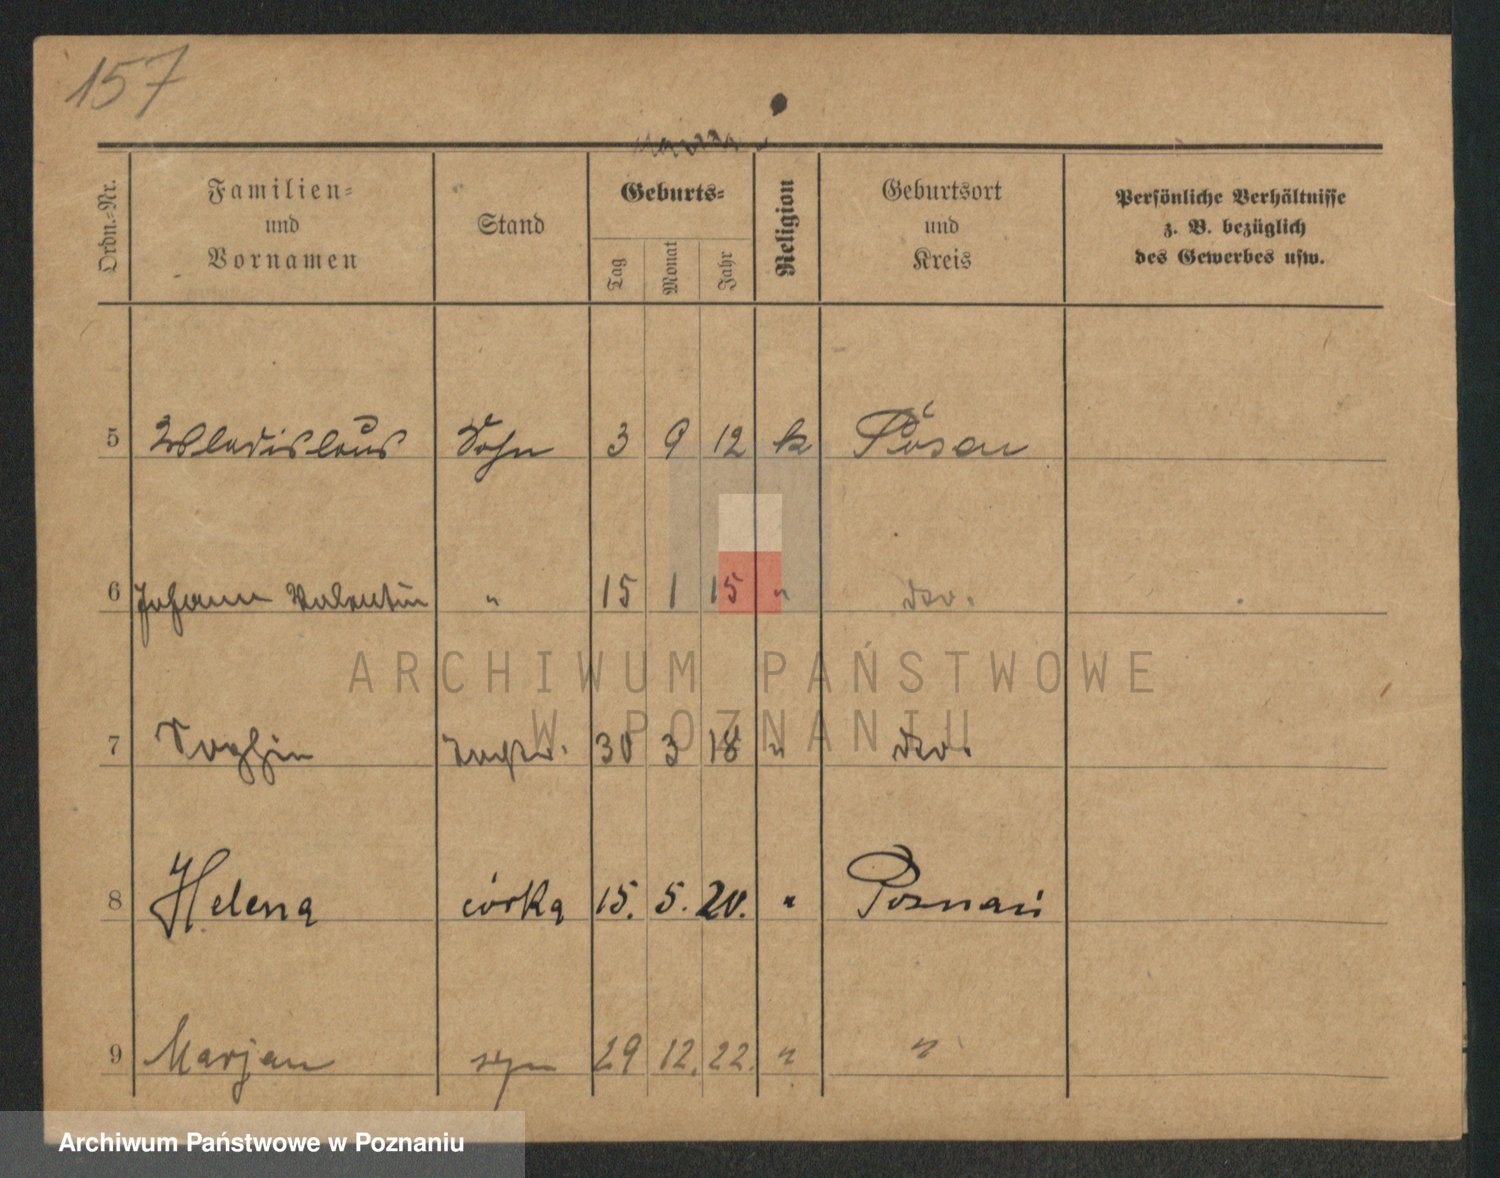 157
Ordn.-Nr.
Familien-
und
Vornamen
Stand
Geburts-
Tag
Monat
Jahr
Religion
Geburtsort
und
Kreis
Persönliche Verhältnisse
z. B. bezüglich
des Gewerbes usw.
5 Wladislaus Sohn 3 9 12 k Posen
6 Johann Valentin " 15 1 15 " dto.
ARCHIWUM PAŃSTWOWE
W POZNANIU
7 Sophie 30 3 18 " dto.
8 Helena córka 15. 5. 20. " Poznań
9 Marjan syn 29 12. 22. " "
Archiwum Państwowe w Poznaniu